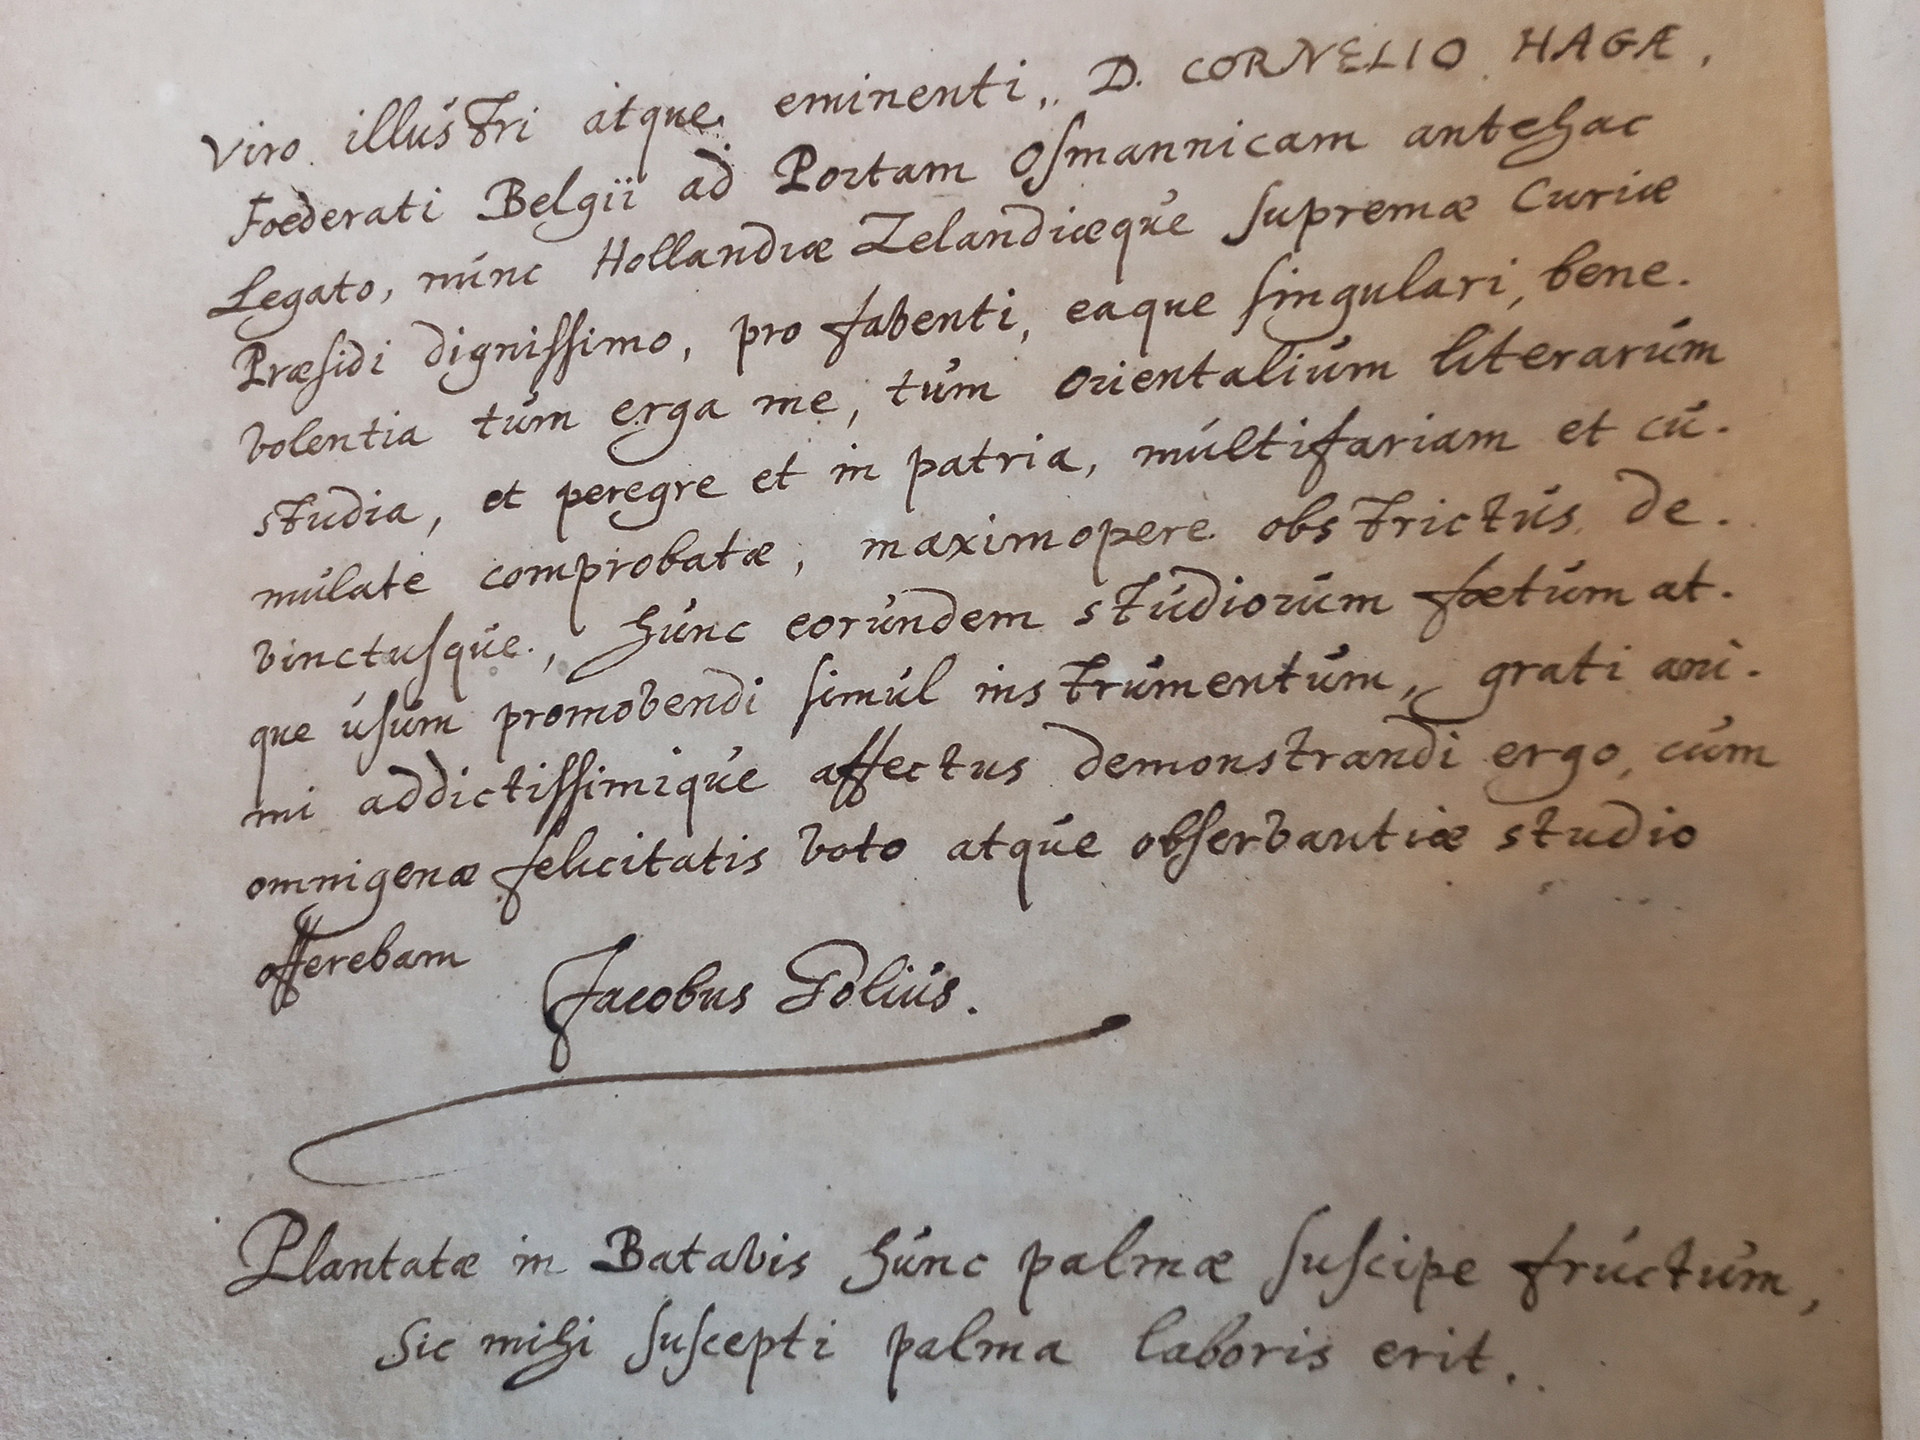 Viro illustri atque eminenti, D. CORNELIO HAGÆ,
Foederati Belgii ad Portam Osmannicam antehac
Legato, nunc Hollandiæ Zelandiæque supremæ Curiæ
Præsidi dignissimo, pro fabenti, eaque singulari, bene-
volentia tum erga me, tum orientalium literarum
studia, et peregre et in patria, multifariam et cu-
mulate comprobatæ, maximopere obstrictus de-
vinctusque, hunc eorundem studiorum fœtum at-
que usum promovendi simul instrumentum, grati ani-
mi addictissimique affectus demonstrandi ergo, cum
omnigenæ felicitatis voto atque observantiæ studio
offerebam
Jacobus Golius.
Plantatæ in Batavis hunc palmæ suscipe fructum,
Sic mihi suscepti palma laboris erit.